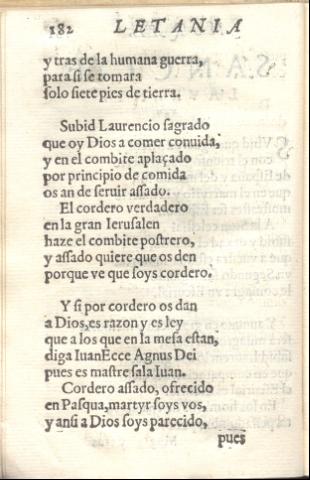 182 LETANIA
y tras de la humana guerra,
para si se tomara
solo siete pies de tierra.
Subid Laurencio sagrado
que oy Dios a comer conuida,
y en el combite aplaçado
por principio de comida
os an de seruir assado.
El cordero verdadero
en la gran Ierusalen
haze el combite postrero,
y assado quiere que os den
porque ve que soys cordero.
Y si por cordero os dan
a Dios, es razon y es ley
que a los que en la mesa estan,
diga Iuan Ecce Agnus Dei
pues es mastre sala Iuan.
Cordero assado, ofrecido
en Pasqua, martyr soys vos,
y ansi a Dios soys parecido,
pues